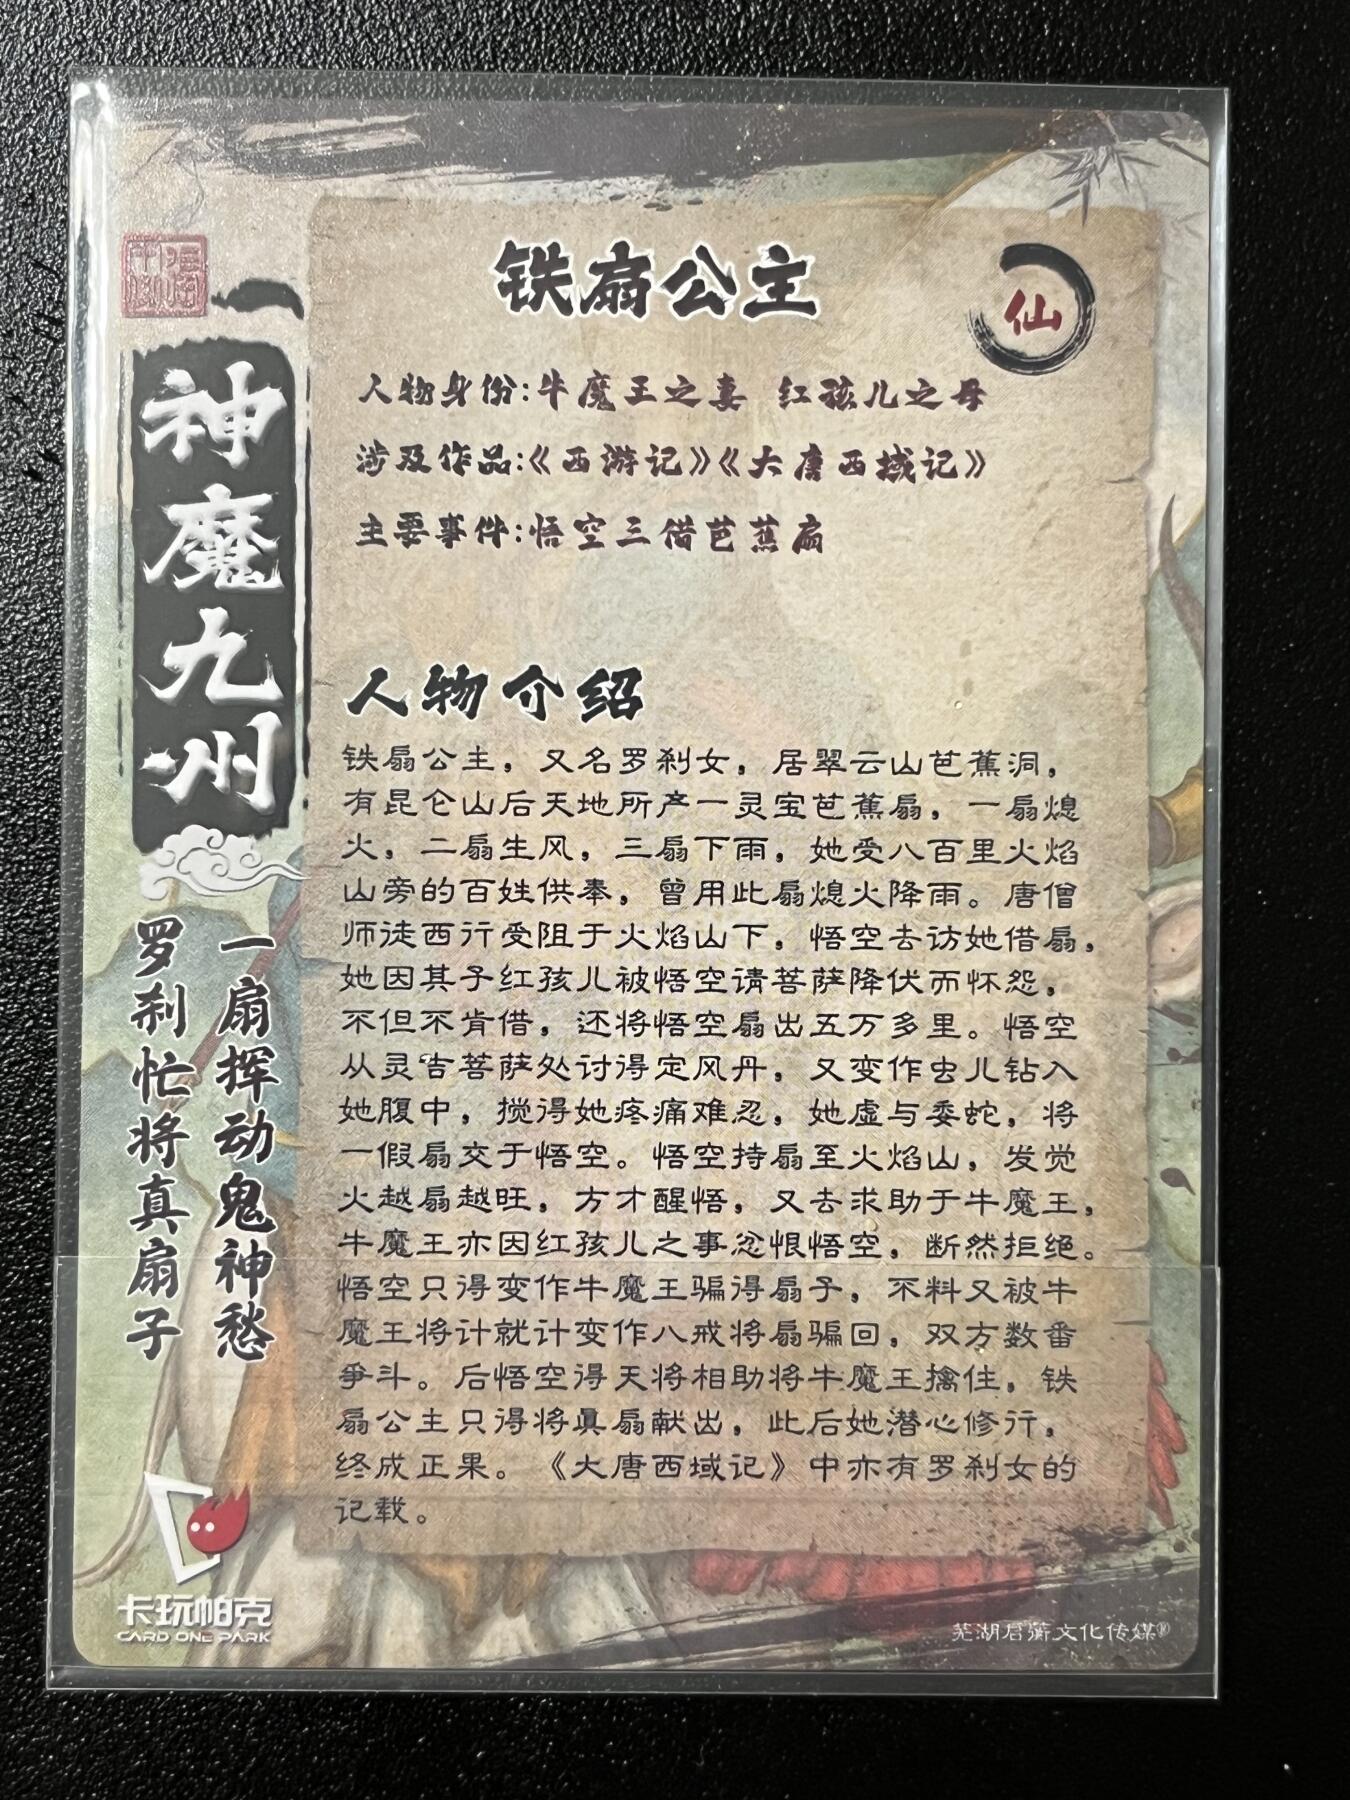 铁扇公主
仙
人物身份:牛魔王之妻 红孩儿之母
涉及作品:《西游记》《大唐西域记》
主要事件:悟空三借芭蕉扇
人物介绍
铁扇公主，又名罗刹女，居翠云山芭蕉洞，
有昆仑山后天地所产一灵宝芭蕉扇，一扇熄
火，二扇生风，三扇下雨，她受八百里火焰
山旁的百姓供奉，曾用此扇熄火降雨。唐僧
师徒西行受阻于火焰山下，悟空去访她借扇，
她因其子红孩儿被悟空请菩萨降伏而怀怨，
不但不肯借，还将悟空扇出五万多里。悟空
从灵吉菩萨处讨得定风丹，又变作虫儿钻入
她腹中，搅得她疼痛难忍，她虚与委蛇，将
一假扇交于悟空。悟空持扇至火焰山，发觉
火越扇越旺，方才醒悟，又去求助于牛魔王，
牛魔王亦因红孩儿之事忿恨悟空，断然拒绝。
悟空只得变作牛魔王骗得扇子，不料又被牛
魔王将计就计变作八戒将扇骗回，双方数番
争斗。后悟空得天将相助将牛魔王擒住，铁
扇公主只得将真扇献出，此后她潜心修行，
终成正果。《大唐西域记》中亦有罗刹女的
记载。
神魔九州
一扇挥动鬼神愁
罗刹忙将真扇子
卡玩帕克
CARD ONE PARK
芜湖启蒴文化传媒®